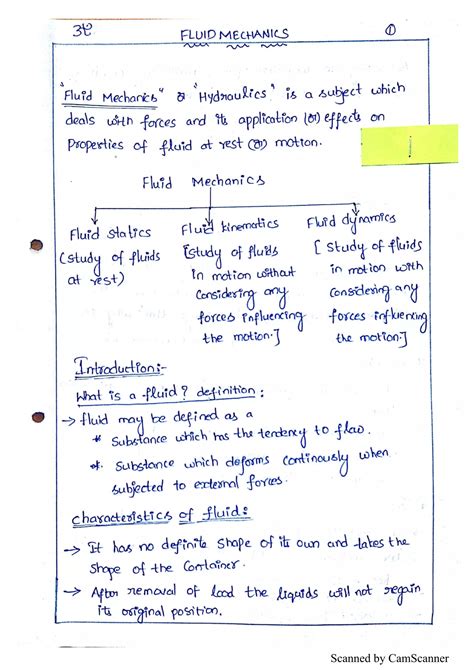 FLUID MECHANICS
①
"Fluid Mechanics" or "Hydraulics" is a subject which
deals with forces and its application (or) effects on
Properties of fluid at rest (or) motion.
Fluid Mechanics
Fluid statics
(study of fluids
at rest)
Fluid kinematics
[study of fluids
in motion without
considering any
forces influencing
the motion.]
Fluid dynamics
[study of fluids
in motion with
considering any
forces influencing
the motion.]
Introduction:-
What is a fluid? definition:
→ fluid may be defined as a
* Substance which has the tendency to flow.
*. Substance which deforms continously when
subjected to external forces.
characteristics of fluid:
→ It has no definite shape of its own and takes the
shape of the container.
→ After removal of load the liquids will not regain
its original position.
Scanned by CamScanner